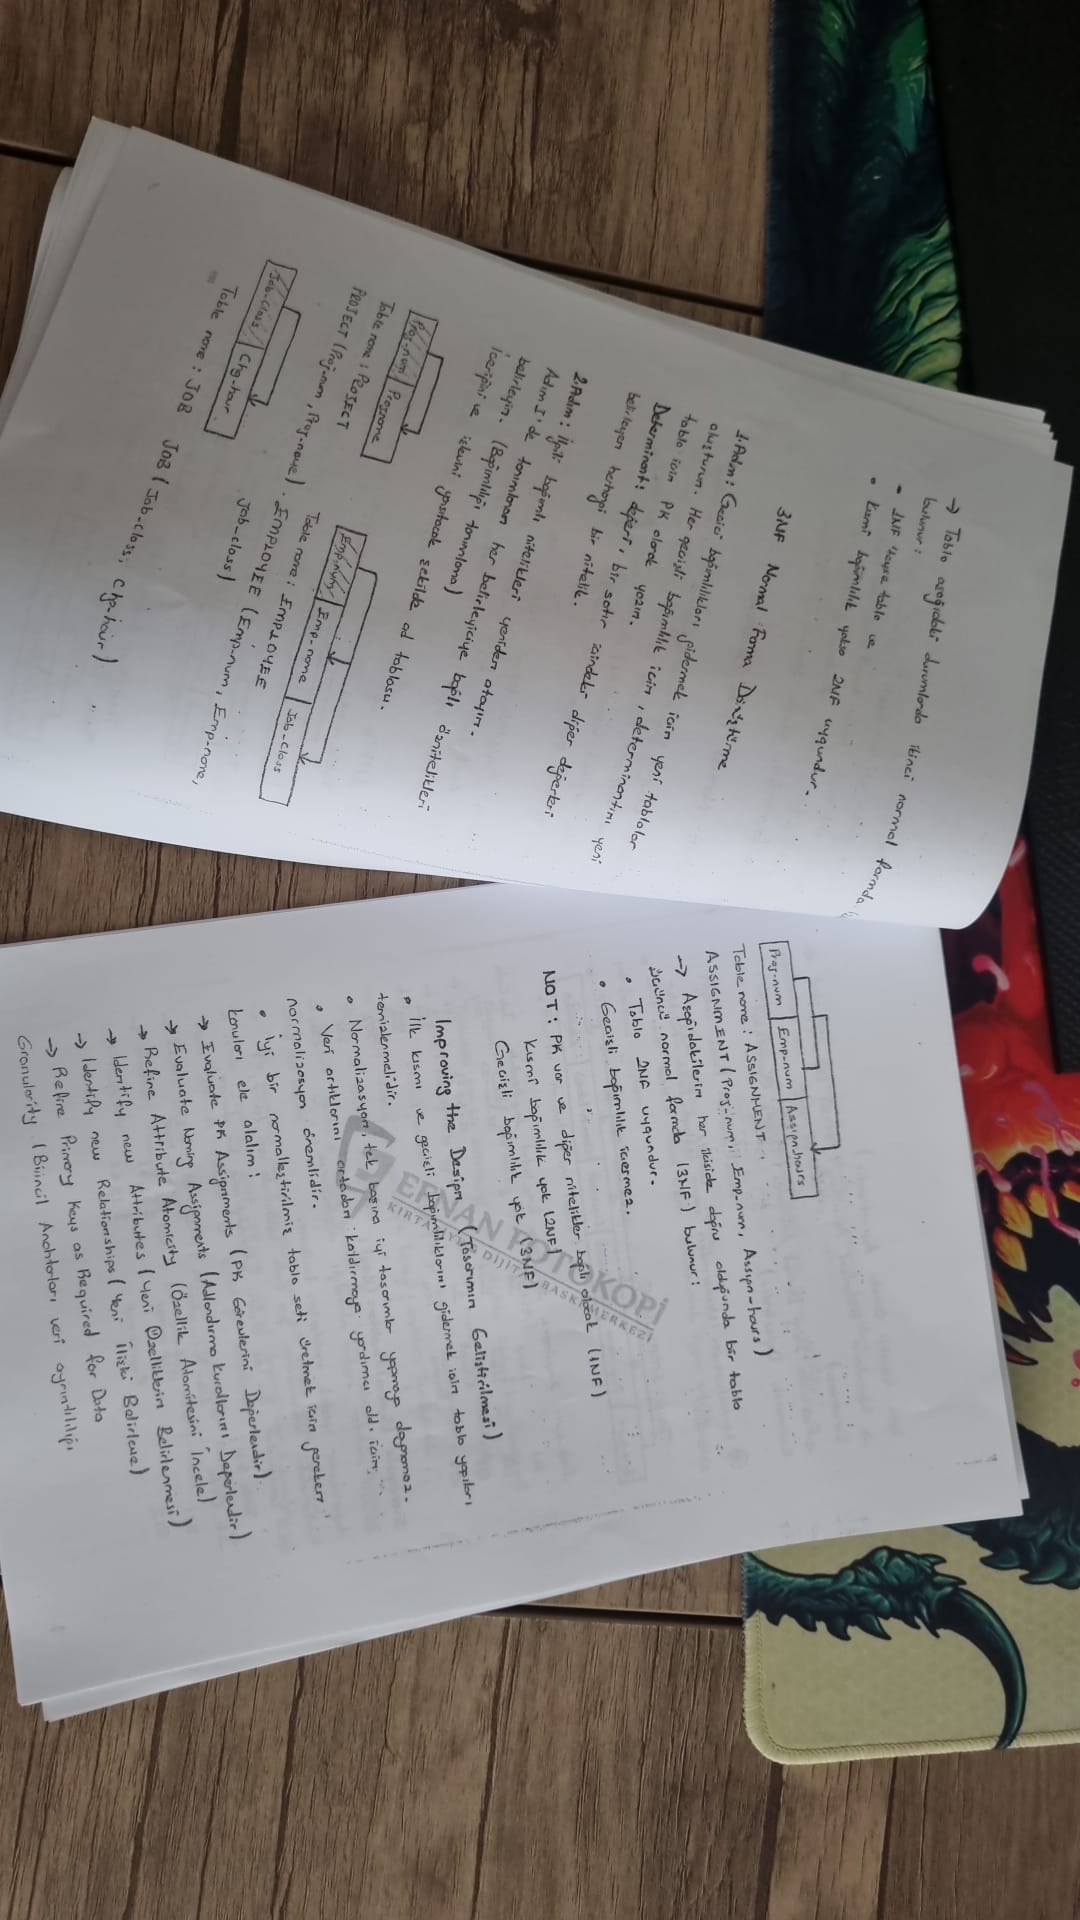 → Tablo aşağıdaki durumlarda ikinci normal formda
bulunur:
• 1NF ise tablo ve
• Kısmi bağımlılık yoksa 2NF uygundur.
3NF Normal Forma Dönüştürme
1.Adım: Geçici bağımlılıkları gidermek için yeni tablolar
oluşturun. Her geçişli bağımlılık için, determinantını yeni
tablo için PK olarak yazın.
Determinant: değeri, bir satır içindeki diğer değerleri
belirleyen herhangi bir nitelik.
2.Adım: İlgili bağımlı nitelikleri yeniden atayın.
Adım 1'de tanımlanan her belirleyiciye bağlı öznitelikleri
belirleyin. (Bağımlılığı tanımlama)
içeriğini ve işlevini yansıtacak şekilde ad tablosu.
Proj-num Projname
Table name: PROJECT
PROJECT (Proj-num, Proj-name)
Emp-num Emp-name Job-class
Table name: EMPLOYEE
EMPLOYEE (Emp-num, Emp-name,
Job-class)
Job-class Chg-hour
Table name: JOB JOB (Job-class, Chg-hour)
Proj-num Emp-num Assign-hours
Table name: ASSIGNMENT
ASSIGNMENT (Proj-num, Emp-num, Assign-hours)
→ Aşağıdakilerin her ikiside doğru olduğunda bir tablo
üçüncü normal formda (3NF) bulunur:
• Tablo 2NF uygundur.
• Geçişli bağımlılık içermez.
NOT: PK var ve diğer nitelikler bağlı olacak (1NF)
Kısmi bağımlılık yok (2NF)
Geçişli bağımlılık yok (3NF)
Improving the Design (Tasarımın Geliştirilmesi)
• İlk kısmi ve geçişli bağımlılıklarını gidermek için tablo yapıları
temizlenmelidir.
• Normalizasyon, tek başına iyi tasarımlar yapmaya dayanamaz.
• Veri artıklarını ortadan kaldırmaya yardımcı old. için
normalizasyon önemlidir.
• İyi bir normalleştirilmiş tablo seti üretmek için gereken
konuları ele alalım:
→ Evaluate PK Assignments (PK Görevlerini Değerlendir)
→ Evaluate Naming Assignments (Adlandırma kurallarını Değerlendir)
→ Refine Attribute Atomicity (Özellik Atomitesini İncele)
→ Identify new Attributes (Yeni Özelliklerin Belirlenmesi)
→ Identify new Relationships (Yeni İlişki Belirleme)
→ Refine Primary Keys as Required for Data
Granularity (Birincil Anahtarları veri ayrıntılılığı
ERHAN FOTOKOPİ
KIRTASİYE DİJİTAL BASKI MERKEZİ